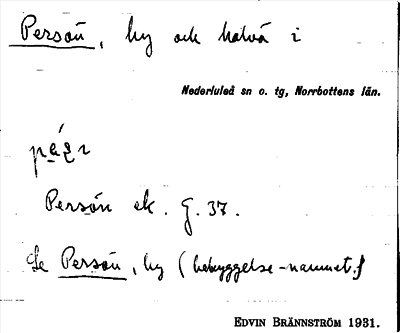 Persön, by och halvö i
Nederluleå sn o. tg, Norrbottens län.
Persön ek. G. 37.
Se Persön, by (bebyggelse-namnet.)
EDVIN BRÄNNSTRÖM 1931.